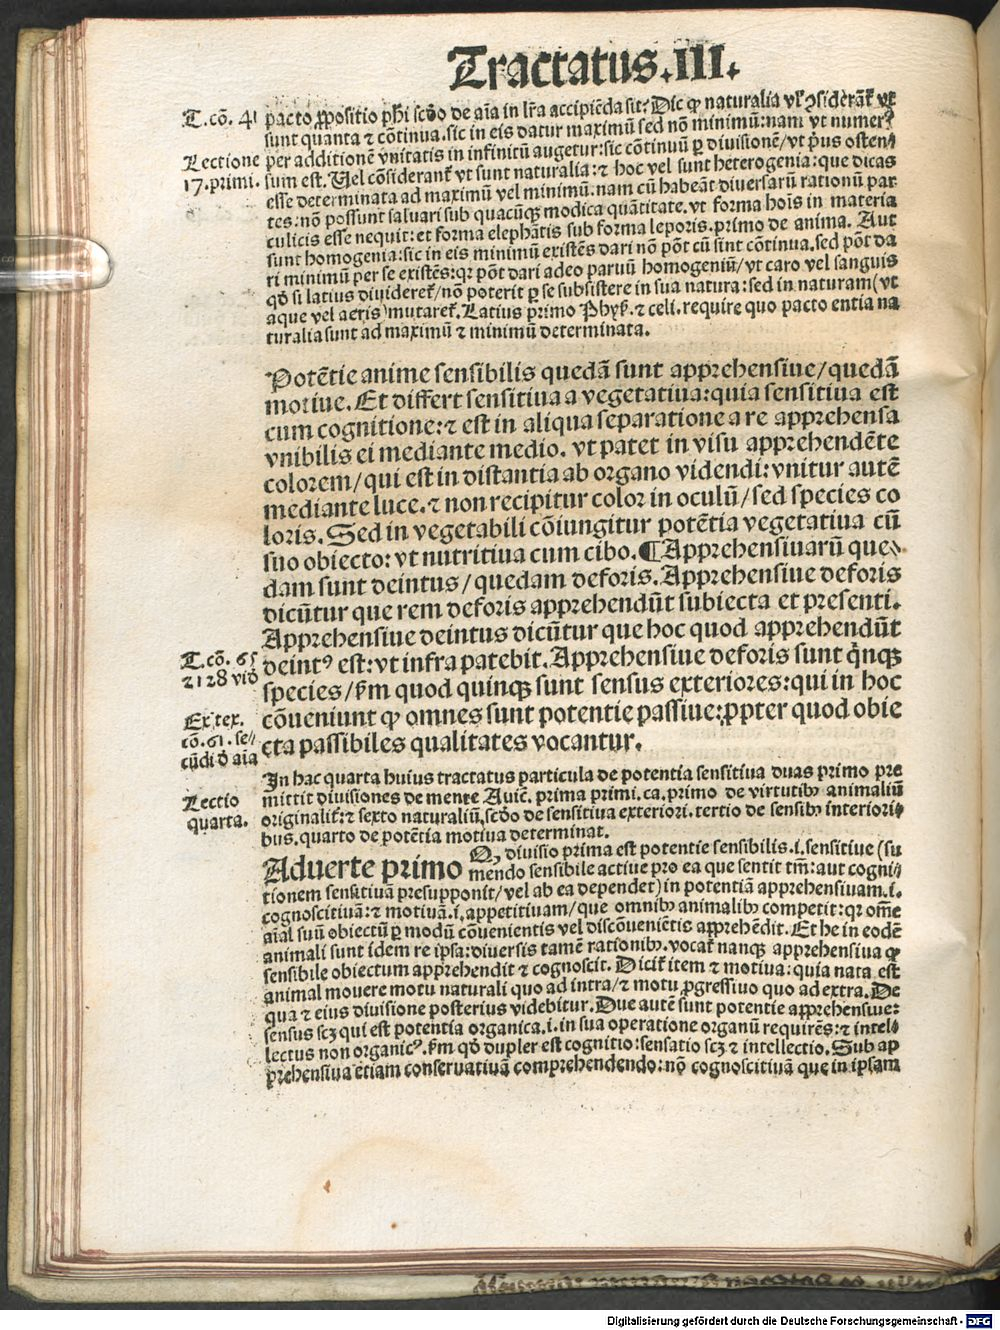 Tractatus.III.
T.cō. 41
pacto ꝓpositio phi scd̄o de aīa in lr̄a accipiēda sit? Dic ꝙ naturalia vl' ↄsiderant̄ vt
sunt quanta ⁊ cōtinua. sic in eis datur maximū sed nō minimū: nam vt numerꝰ
Lectione
per additionē vnitatis in infinitū augetur: sic cōtinuū ꝑ divisionē/ vt pͥus osten/
17. primi.
sum est. Uel cōsiderant̄ vt sunt naturalia: ⁊ hoc vel sunt heterogenia: que dicas
esse determinata ad maximū vel minimū. nam cū habeāt diversarū rationū par
tes: nō possunt salvari sub quacūqꝫ modica quātitate. vt forma hoīs in materia
culicis esse nequit: et forma elephātis sub forma leporis. primo de anima. Aut
sunt homogenia: sic in eis minimū existēs dari nō pōt cū sint cōtinua. sed pōt da
ri minimū per se existēs: qꝛ pōt dari adeo parvū homogeniū/ vt caro vel sanguis
qd̄ si latius divideret̄/ nō poterit ꝑ se subsistere in sua natura: sed in naturam (vt
aque vel aeris) mutaret̄. Latius primo Phyꝭ. ⁊ celi. require quo pacto entia na
turalia sunt ad maximū ⁊ minimū determinata.
Potētie anime sensibilis quedā sunt apprehensive/ quedā
motive. Et differt sensitiva a vegetativa: quia sensitiva est
cum cognitione: ⁊ est in aliqua separatione a re apprehensa
vnibilis ei mediante medio. vt patet in visu apprehendēte
colorem/ qui est in distantia ab organo videndi: vnitur autē
mediante luce. ⁊ non recipitur color in oculū/ sed species co
loris. Sed in vegetabili cōiungitur potētia vegetativa cū
suo obiecto: vt nutritiva cum cibo. ¶ Apprehensivarū que
dam sunt deintus/ quedam deforis. Apprehensive deforis
dicūtur que rem deforis apprehendūt subiecta et presenti.
Apprehensive deintus dicūtur que hoc quod apprehendūt
T.cō. 65
deintꝰ est: vt infra patebit. Apprehensive deforis sunt qͥnqꝫ
⁊ 128 vid̄
species/ ẜm quod quinqꝫ sunt sensus exteriores: qui in hoc
Ex tex.
cō. 61. se/
cūdi d̄ aīa
cōveniunt ꝙ omnes sunt potentie passive: ꝓpter quod obie
cta passibiles qualitates vocantur.
Lectio
quarta.
In hac quarta huius tractatus particula de potentia sensitiva duas primo pre
mittit divisiones de mente Avic̄. prima primi. ca. primo de virtutibꝫ animaliū
originalit̄: ⁊ sexto naturaliū. scd̄o de sensitiva exteriori. tertio de sensibꝫ interiori
bus. quarto de potētia motiva determinat.
Adverte primo Q, divisio prima est potentie sensibilis. i. sensitive (su
mendo sensibile active pro ea que sentit tm̄: aut cogni/
tionem sensitivā presupponit/ vel ab ea dependet) in potentiā apprehensivam. i.
cognoscitivā: ⁊ motivā. i. appetitivam/ que omnibꝫ animalibꝫ competit: qꝛ om̄e
aīal suū obiectū ꝑ modū cōvenientis vel discōveniētis apprehēdit. Et he in eodē
animali sunt idem re ipsa: diversis tamē rationibꝫ. vocat̄ nanqꝫ apprehensiva ꝙ
sensibile obiectum apprehendit ⁊ cognoscit. Dicit̄ item ⁊ motiva: quia nata est
animal movere motu naturali quo ad intra/ ⁊ motu ꝓgressivo quo ad extra. De
qua ⁊ eius divisione posterius videbitur. Due autē sunt potentie apprehensive:
sensus scꝫ qui est potentia organica. i. in sua operatione organū requirēs: ⁊ intel/
lectus non organicꝰ. ẜm qd̄ dupler est cognitio: sensatio scꝫ ⁊ intellectio. Sub ap
prehensiva etiam conservativā comprehendendo: nō cognoscitivā que in ipsam
Digitalisierung gefördert durch die Deutsche Forschungsgemeinschaft - DFG